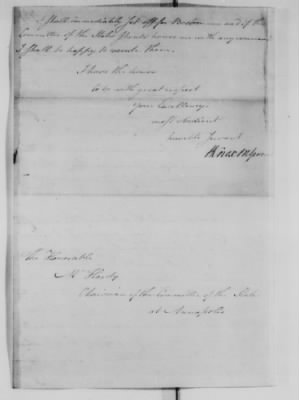 I shall immediately set off for Boston and if the
Committee of the States should honor me with any commands
I shall be happy to execute them.
I have the honor
to be with great respect
Your Excellency's
most obedient
humble Servant
HKnox MGen
The Honorable
Mr Hardy
Chairman of the Committee of the State
at Annapolis